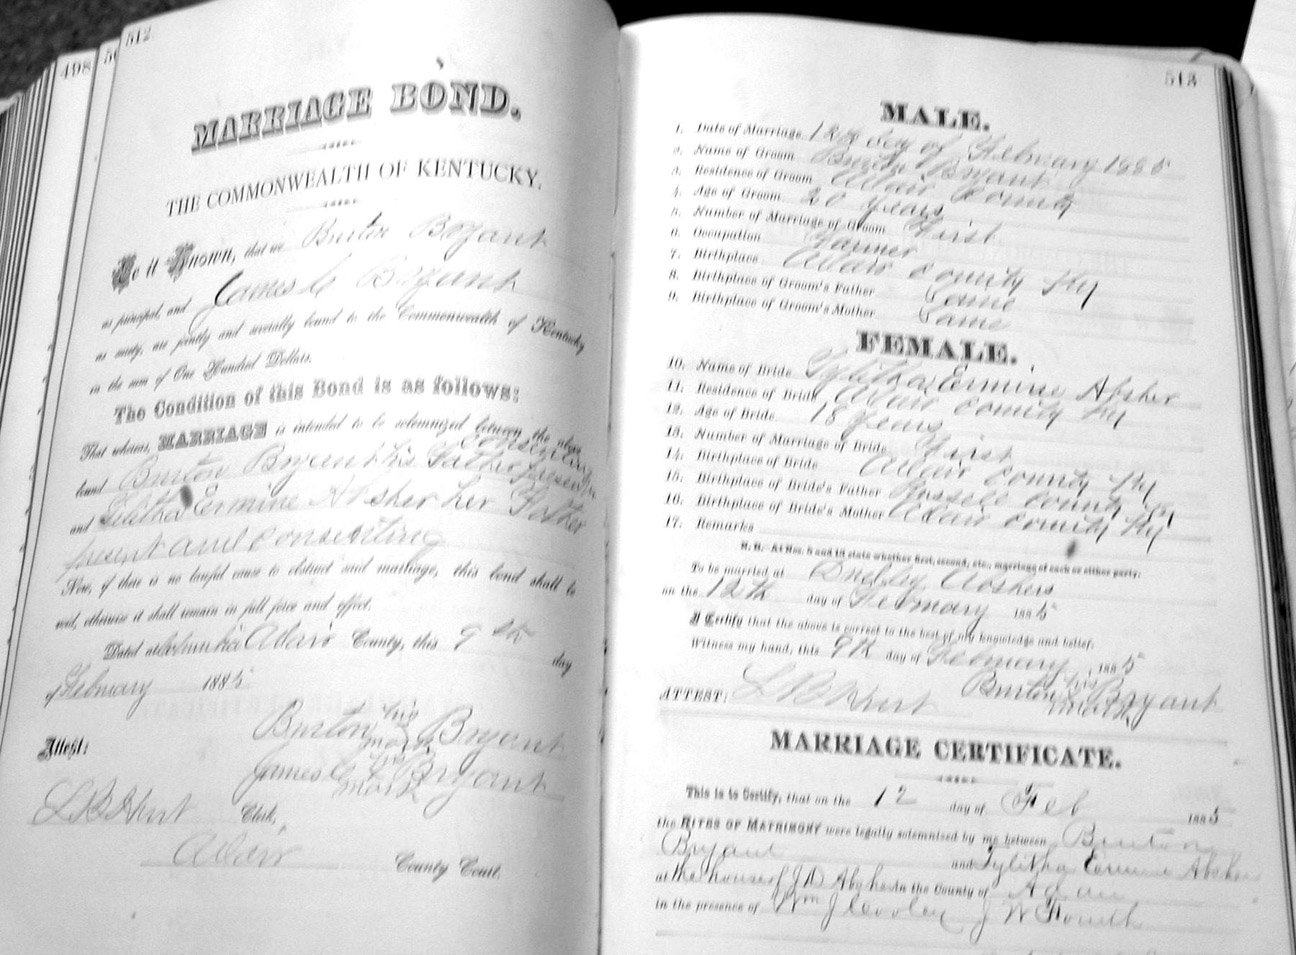 498
512
MARRIAGE BOND.
THE COMMONWEALTH OF KENTUCKY.
Be it Known, that we Burton Bryant
as principal, and James C Bryant
as surety, are jointly and severally bound to the Commonwealth of Kentucky
in the sum of One Hundred Dollars.
The Condition of this Bond is as follows:
That whereas, MARRIAGE is intended to be solemnized between the above
consenting
bound Burton Bryant his Father present
and Telitha Ermine Absher her Father
present and Consenting
Now, if there is no lawful cause to obstruct said marriage, this bond shall be
void, otherwise it shall remain in full force and effect.
Dated at Columbia Adair County, this 9th day
of February 1885
Burton his mark Bryant
Attest:
James C his mark Bryant
L B Hurt Clerk,
Adair County Court.
513
MALE.
1. Date of Marriage 12th day of February 1885
2. Name of Groom Burton Bryant
3. Residence of Groom Adair County
4. Age of Groom 20 years
5. Number of Marriage of Groom First
6. Occupation Farmer
7. Birthplace Adair County Ky
8. Birthplace of Groom's Father Same
9. Birthplace of Groom's Mother Same
FEMALE.
10. Name of Bride Tylitha Ermine Absher
11. Residence of Bride Adair County Ky
12. Age of Bride 18 years
13. Number of Marriage of Bride First
14. Birthplace of Bride Adair County Ky
15. Birthplace of Bride's Father Russell County Ky
16. Birthplace of Bride's Mother Adair County Ky
17. Remarks
N. B.—At Nos. 5 and 13 state whether first, second, etc., marriage of each or either party.
To be married at Abshers
on the 12th day of February 1885
I Certify that the above is correct to the best of my knowledge and belief.
Witness my hand, this 9th day of February, 1885
ATTEST: L B Hurt Burton his mark Bryant
MARRIAGE CERTIFICATE.
This is to Certify, that on the 12 day of Feb 1885
the RITES OF MATRIMONY were legally solemnized by me between Burton
Bryant and Tylitha Ermine Absher
at the house of J D Absher in the County of Adair
in the presence of Wm J Cooley J W